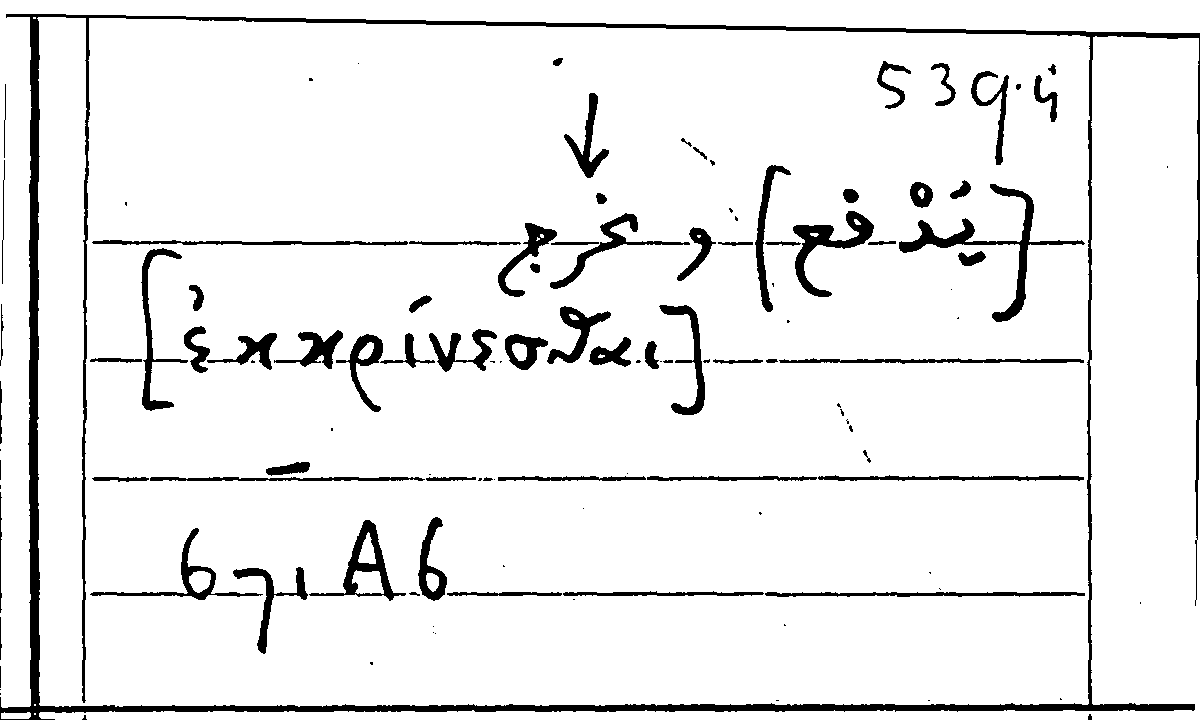 539.4
[يَدْفع] و خرج
[ἐκκρίνεσθαι]
671 A6